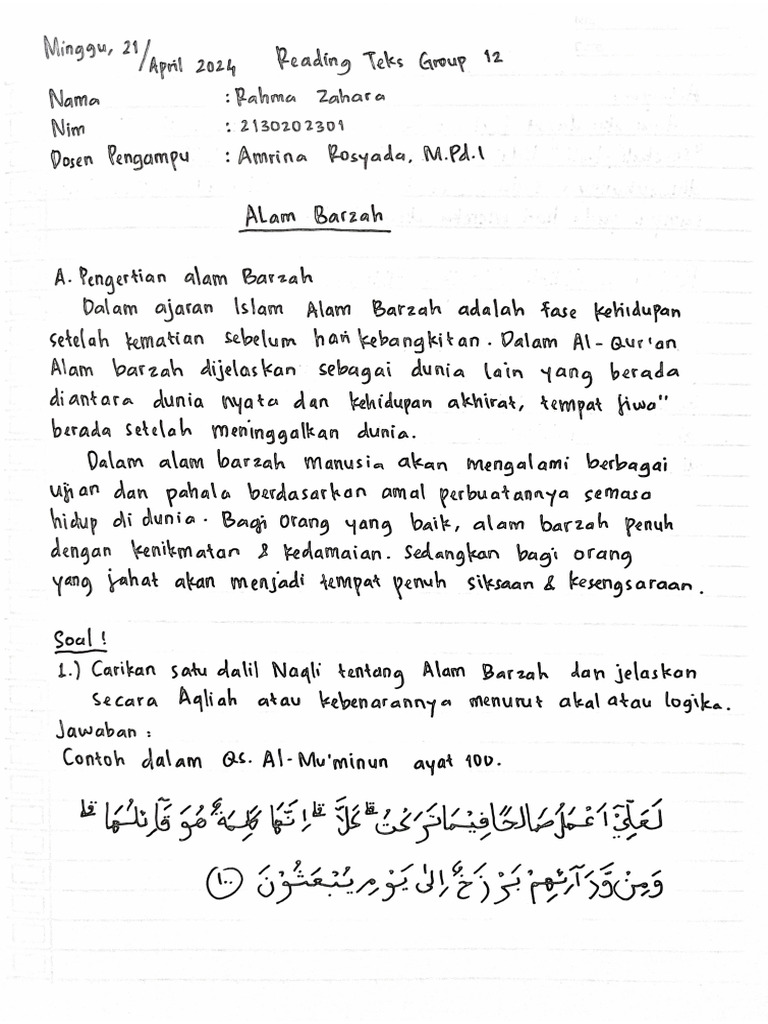 Minggu, 21/April 2024 Reading Teks Group 12
Nama : Rahma Zahara
Nim : 2130202301
Dosen Pengampu : Amrina Rosyada, M.Pd.I
Alam Barzah
A. Pengertian alam Barzah
Dalam ajaran Islam Alam Barzah adalah fase kehidupan
setelah kematian sebelum hari kebangkitan. Dalam Al-Qur'an
Alam barzah dijelaskan sebagai dunia lain yang berada
diantara dunia nyata dan kehidupan akhirat, tempat jiwa"
berada setelah meninggalkan dunia.
Dalam alam barzah manusia akan mengalami berbagai
ujian dan pahala berdasarkan amal perbuatannya semasa
hidup di dunia. Bagi orang yang baik, alam barzah penuh
dengan kenikmatan & kedamaian. Sedangkan bagi orang
yang jahat akan menjadi tempat penuh siksaan & kesengsaraan.
Soal!
1.) Carikan satu dalil Naqli tentang Alam Barzah dan jelaskan
secara Aqliah atau kebenarannya menurut akal atau logika.
Jawaban :
Contoh dalam Qs. Al-Mu'minun ayat 100.
لَعَلِّيْٓ اَعْمَلُ صَالِحًا فِيْمَا تَرَكْتُ ۗ كَلَّا ۗ اِنَّهَا كَلِمَةٌ هُوَ قَاۤىِٕلُهَا ۗ
وَمِنْ وَّرَاۤىِٕهِمْ بَرْزَخٌ اِلٰى يَوْمِ يُبْعَثُوْنَ ١٠٠